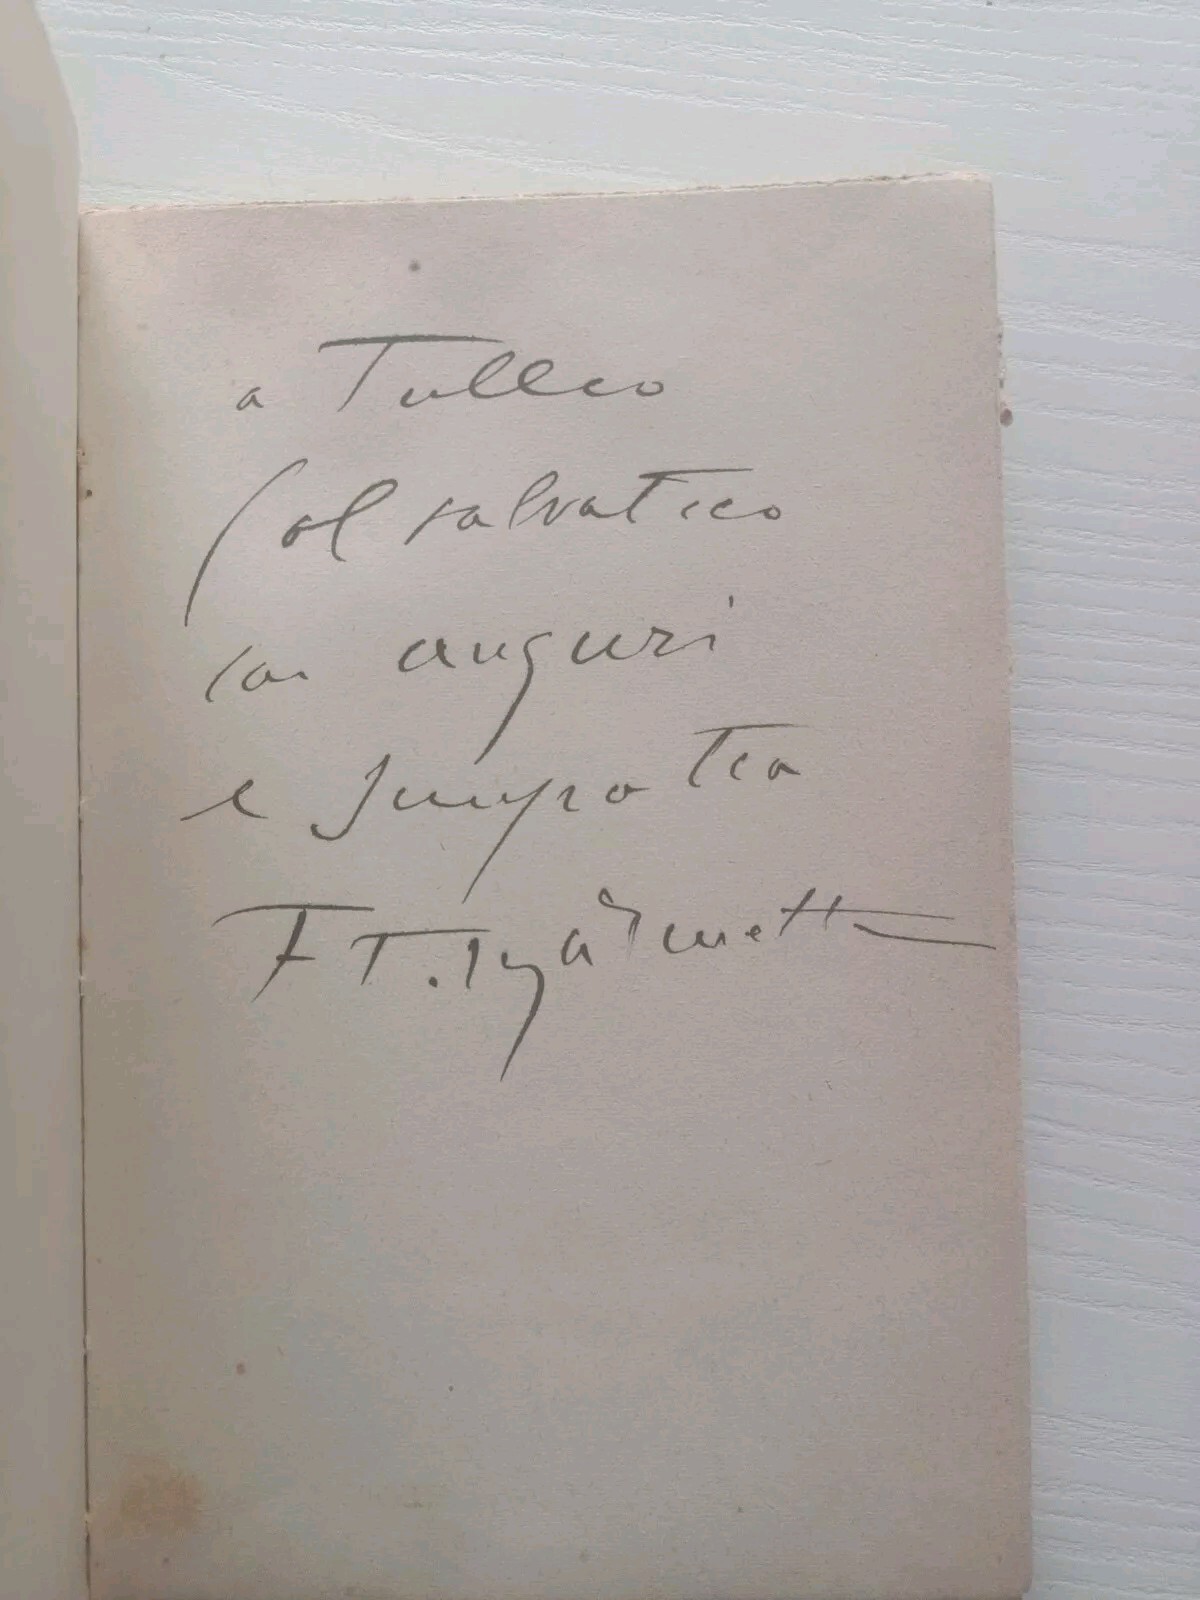 a Tullio
Colsalvatico
con auguri
e simpatia
F T. Marinetti